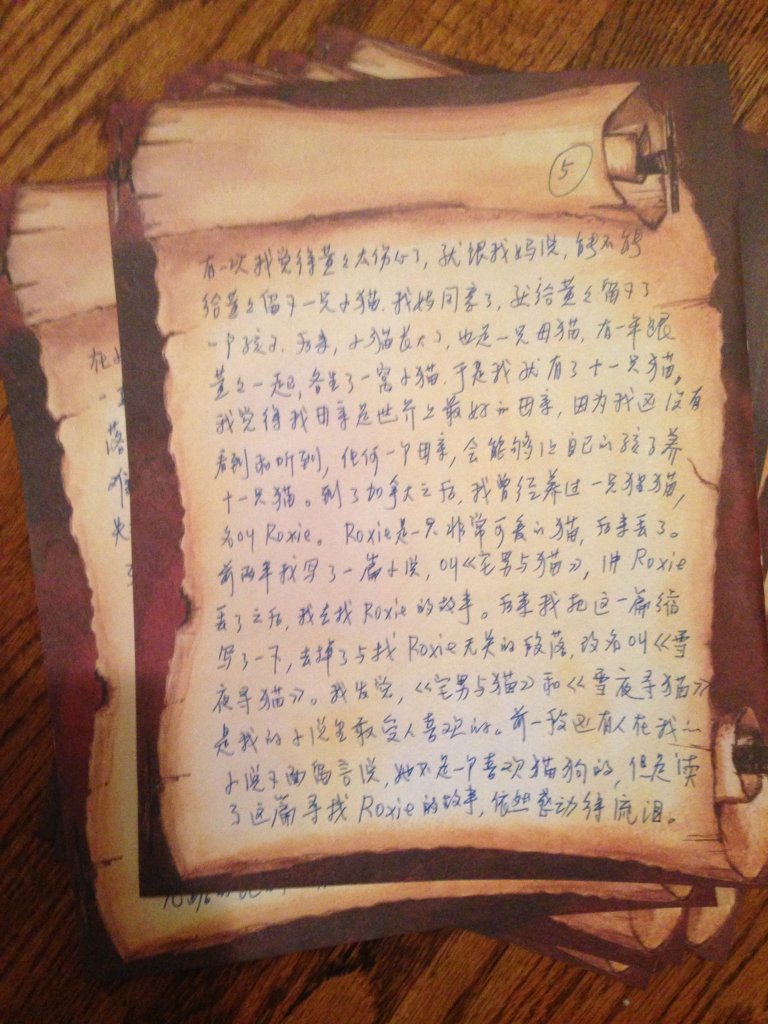 5
有一次我觉得黄黄太伤心了,就跟我妈说,能不能
给黄黄留下一只小猫.我妈同意了,就给黄黄留下了
一个孩子.后来,小猫长大了,也是一只母猫,有一年跟
黄黄一起,各生了一窝小猫.于是我就有了十一只猫。
我觉得我母亲是世界上最好的母亲,因为我还没有
看到和听到,任何一个母亲,会能够让自己的孩子养
十一只猫。到了加拿大之后,我曾经养过一只猫,
名叫Roxie。Roxie是一只非常可爱的猫,后来丢了。
前两年我写了一篇小说,叫《宅男与猫》,讲Roxie
丢了之后,我去找Roxie的故事。后来我把这一篇缩
写了一下,去掉了与找Roxie无关的段落,改名叫《雪
夜寻猫》。我发觉,《宅男与猫》和《雪夜寻猫》
是我的小说里最受人喜欢的。前一段还有人在我的
小说下面留言说,她不是一个喜欢猫狗的,但是读
了这篇寻找Roxie的故事,依然感动得流泪。
在
落
难